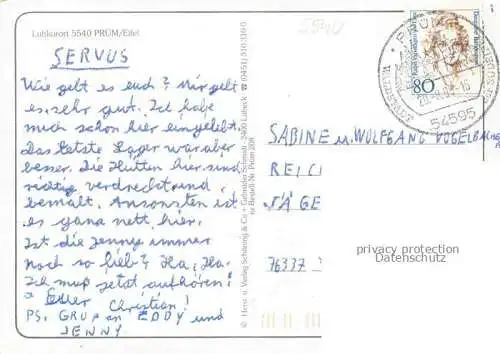 Luftkurort 5540 PRÜM/Eifel
SERVUS
Wie geht es euch? Mir geht
es sehr gut. Ich habe
mich schon hier eingelebt.
Das letzte Lager war aber
besser. Die Hütten hier sind
richtig verdreckt und
bemalt. Ansonsten ist
es ganz nett hier.
Ist die Jenny immer
noch so lieb? Ha, Ha.
Ich muß jetzt aufhören!
Euer Christian!
PS. GRUß an EDDY und
JENNY
© Herst. u. Verlag Schöning & Co + Gebrüder Schmidt
Lübeck
5540
PRÜM
54595
80
SABINE u. WOLFGANG VOGELBACHER
REICI
JÄGE
76337
privacy protection
Datenschutz